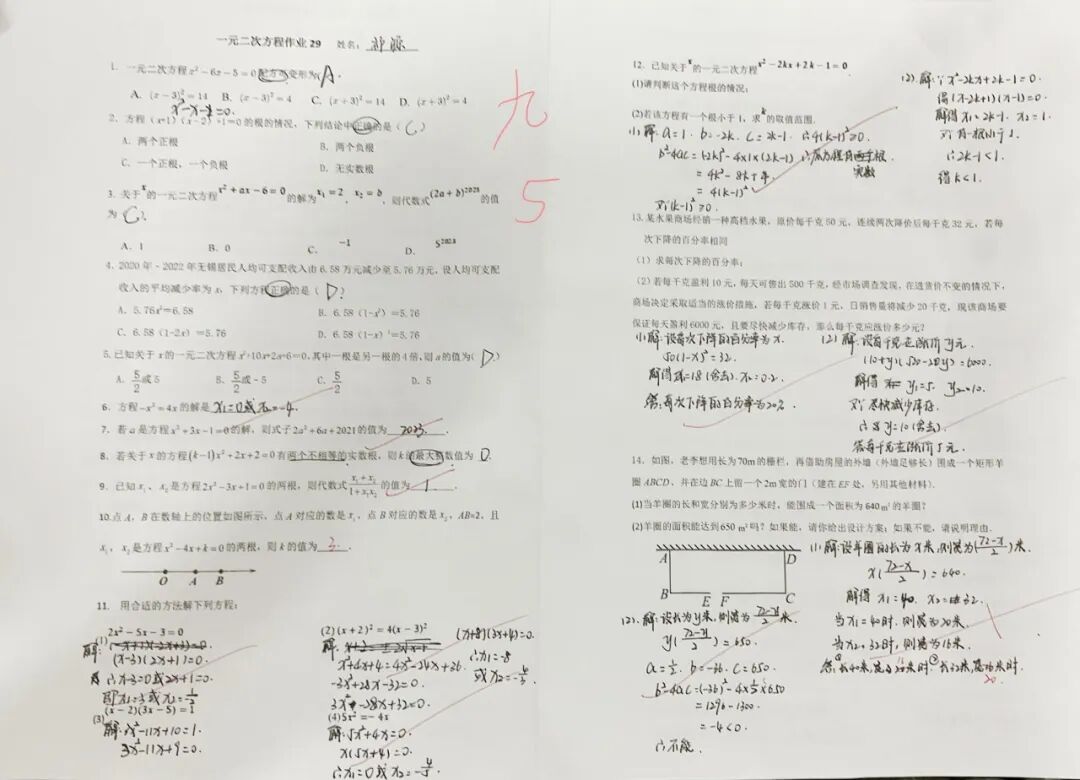 一元二次方程作业29 姓名：
1. 一元二次方程x²-6x-5=0配方可变形为(A.
A. (x-3)²=14 B. (x-3)²=4 C. (x+3)²=14 D. (x+3)²=4
2. 方程 (x+1) (x-2) +1=0的根的情况，下列结论中正确的是 ( C )
A. 两个正根 B. 两个负根
C. 一个正根，一个负根 D. 无实数根
3. 关于x的一元二次方程x²+ax-6=0的解为x₁=2，x₂=b，则代数式(2a+b)²⁰²³的值
为 C ).
A. 1 B. 0 C. -1 D. 5²⁰²³
4. 2020年-2022年无锡居民人均可支配收入由6.58万元减少至5.76万元，设人均可支配
收入的平均减少率为x，下列方程正确的是 ( D )
A. 5.76x²=6.58 B. 6.58 (1-x²) =5.76
C. 6.58 (1-2x) =5.76 D. 6.58 (1-x) ²=5.76
5. 已知关于x的一元二次方程x²+10x+2a+6=0,其中一根是另一根的4倍，则a的值为( D )
A. 5/2或5 B. 5/2或-5 C. 5/2 D. 5
6. 方程-x²=4x的解是 x₁=0或x₂=-4.
7. 若a是方程x²+3x-1=0的解，则式子2a²+6a+2021的值为 2023.
8. 若关于x的方程(k-1)x²+2x+2=0有两个不相等的实数根，则k的最大整数值为 0.
9. 已知x₁、x₂是方程2x²-3x+1=0的两根，则代数式(x₁+x₂)/(1+x₁x₂)的值为 1 .
10.点A，B在数轴上的位置如图所示，点A对应的数是x₁，点B对应的数是x₂，AB=2，且
x₁，x₂是方程x²-4x+k=0的两根，则k的值为 3 .
O A B
11. 用合适的方法解下列方程：
(1) 2x²-5x-3=0
解:
(x-3)(2x+1)=0.
∴x-3=0或2x+1=0.
即x₁=3或x₂=-1/2
(2)(x+2)²=4(x-3)²
解:
x²+4x+4=4x²-24x+36
-3x²+28x-32=0.
3x²-28x+32=0.
(x+8)(3x+4)=0.
∴x₁=-8
或x₂=-4/3
(3) (x-2)(3x-5)=1
解:3x²-11x+10=1.
3x²-11x+9=0.
(4)5x²=-4x
解:5x²+4x=0.
x(5x+4)=0.
∴x₁=0或x₂=-4/5.
九
5
12. 已知关于x的一元二次方程x²-2kx+2k-1=0.
(1)请判断这个方程根的情况;
(2)若该方程有一个根小于1，求k的取值范围.
(1)解:a=1. b=-2k. c=2k-1. ∴4(k-1)²≥0.
b²-4ac=(-2k)²-4×1×(2k-1) ∴原方程有两个实数根.
=4k²-8k+4.
=4(k-1)²
又∵(k-1)²≥0.
(2).解:∵x²-2kx+2k-1=0.
得(x-2k+1)(x-1)=0.
解得x₁=2k-1. x₂=1.
又∵有一根小于1.
∴2k-1<1.
得k<1.
13.某水果商场经销一种高档水果，原价每千克50元，连续两次降价后每千克32元，若每
次下降的百分率相同
(1) 求每次下降的百分率;
(2) 若每千克盈利10元，每天可售出500千克，经市场调查发现，在进货价不变的情况下，
商场决定采取适当的涨价措施，若每千克涨价1元，日销售量将减少20千克，现该商场要
保证每天盈利6000元，且要尽快减少库存，那么每千克应涨价多少元?
(1)解:设每次下降的百分率为x.
50(1-x)²=32.
解得x₁=1.8(舍去). x₂=0.2.
答:每次下降的百分率为20%.
(2).解:设每千克应涨价y元.
(10+y)(500-20y)=6000.
解得 y₁=5. y₂=10.
又∵尽快减少库存.
∴y=10(舍去).
答每千克应涨价5元.
14. 如图，老李想用长为70m的栅栏，再借助房屋的外墙 (外墙足够长) 围成一个矩形羊
圈ABCD，并在边BC上留一个2m宽的门 (建在EF处，另用其他材料).
(1)当羊圈的长和宽分别为多少米时，能围成一个面积为640m²的羊圈?
(2)羊圈的面积能达到650m²吗? 如果能，请你给出设计方案; 如果不能，请说明理由.
A D
B E F C
(1)解:设羊圈的长为x米,则宽为(72-x)/2米.
x((72-x)/2)=640.
解得x₁=40. x₂=32.
当x₁=40时.则宽为20米.
当x₂=32时,则宽为16米.
20
(2).解:设长为y米,则宽为(72-y)/2米.
y((72-y)/2)=650.
a=1/2. b=-36. c=650.
b²-4ac=(-36)²-4×1/2×650
=1296-1300.
=-4<0.
∴不能.